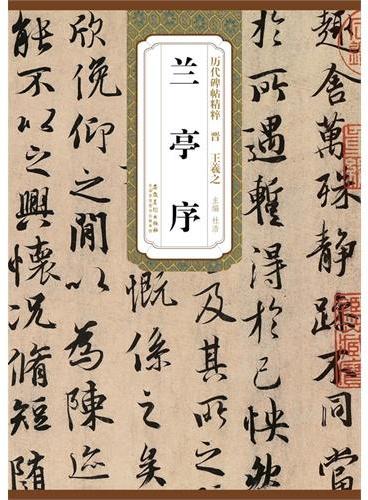 历代碑帖精粹 晋 王羲之
兰亭序
主编 杜浩
安徽美术出版社
趣舍萬殊靜躁不同當
於所遇暫得於己怏然
及其所之
慨係之矣
欣俛仰之間以為陳迹
能不以之興懷況脩短随